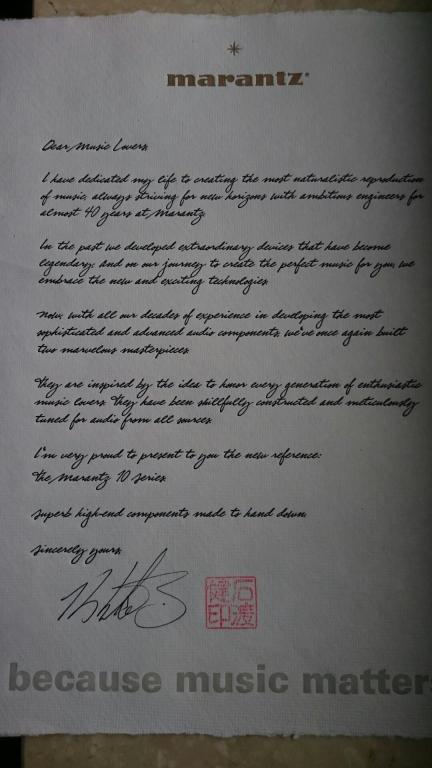 marantz®
Dear Music Lovers,
I have dedicated my life to creating the most naturalistic reproduction
of music, always striving for new horizons with ambitious engineers for
almost 40 years at Marantz.
In the past we developed extraordinary devices that have become
legendary. And on our journey to create the perfect music for you, we
embrace the new and exciting technologies.
Now, with all our decades of experience in developing the most
sophisticated and advanced audio components, we've once again built
two marvelous masterpieces.
They are inspired by the idea to honor every generation of enthusiastic
music lovers. They have been skillfully constructed and meticulously
tuned for audio from all sources.
I'm very proud to present to you the new reference:
the Marantz 10 Series.
Superb high-end components made to hand down.
Sincerely yours,
石渡
健印
because music matters